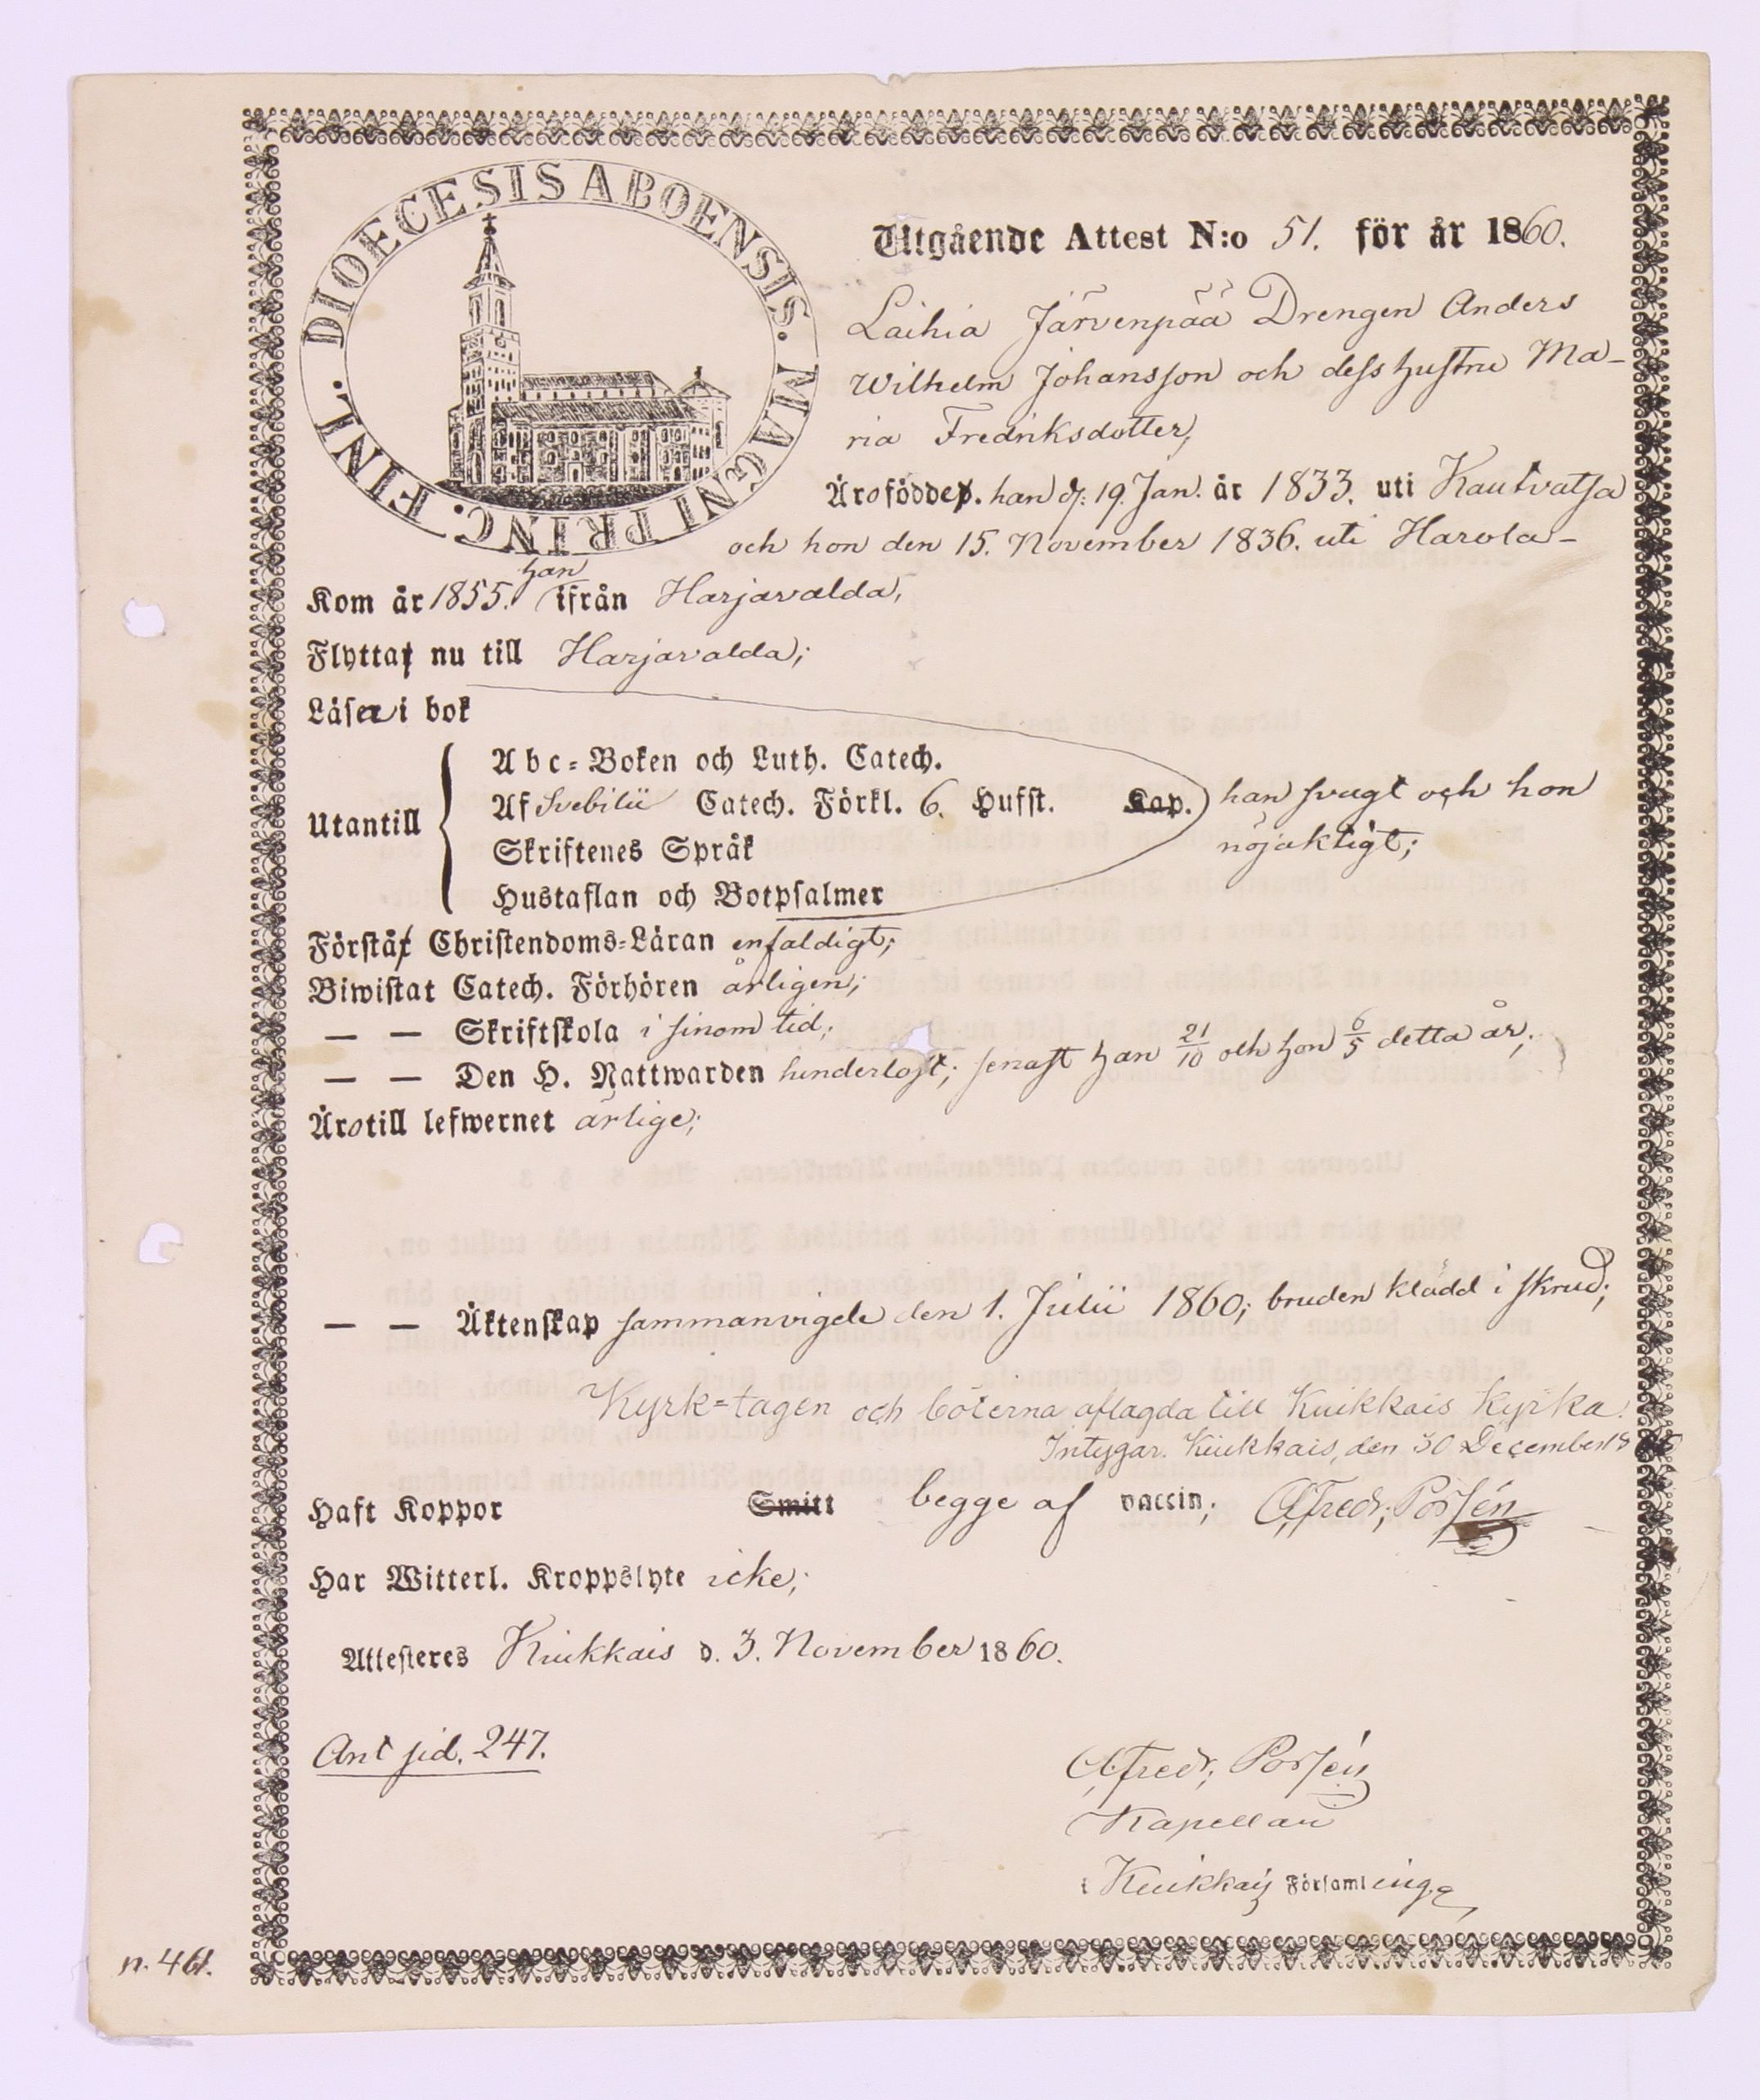 DIOECESIS ABOENSIS. MAGNI PRINC. FINL.
Utgående Attest N:o 51. för år 1860.
Laihia Järvenpää Drengen Anders
Wilhelm Johansson och dess hustru Ma-
ria Fredriksdotter,
Äro födde. han d: 19. Jan. år 1833. uti Kautvatsa
och hon den 15. November 1836. uti Harola-
Kom år 1855. han ifrån Harjavalda,
Flytta nu till Harjavalda;
Läsa i bok
Utantill
Abc-Boken och Luth. Catech.
Af Svebilii Catech. Förkl. 6. Hufst. Kap.
Skriftenes Språk
Hustaflan och Botpsalmer
han svagt och hon
nöjaktigt;
Förstå Christendoms-Läran enfaldigt;
Biwistat Catech. Förhören årligen;
— — Skriftskola i sinom tid;
— — Den H. Nattwarden hinderlöst; senast han 21/10 och hon 6/5 detta år;
Äro till lefwernet ärlige;
— — Äktenskap sammanvigde den 1. Julii 1860; bruden klädd i skrud;
Kyrk-tagen och böterna aflagda till Kiukkais Kyrka.
Intygar. Kiukkais, den 30 December
Haft Koppor Smitt begge af vaccin; Alfredr, Porsén
Har Witterl. Kroppslyte icke;
Attesteres Kiukkais d. 3. November 1860.
Ant sid. 247.
Alfredr, Porsén
Kapellan
i Kiukkais Församling
n. 461.